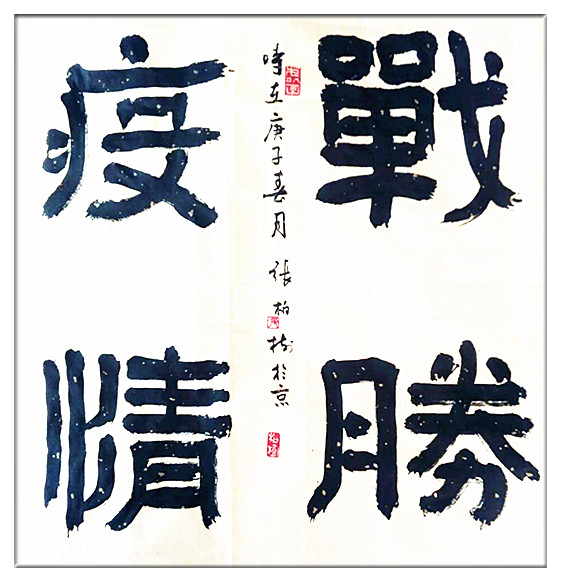 戰勝
疫情
時在庚子春月張柏樹於京